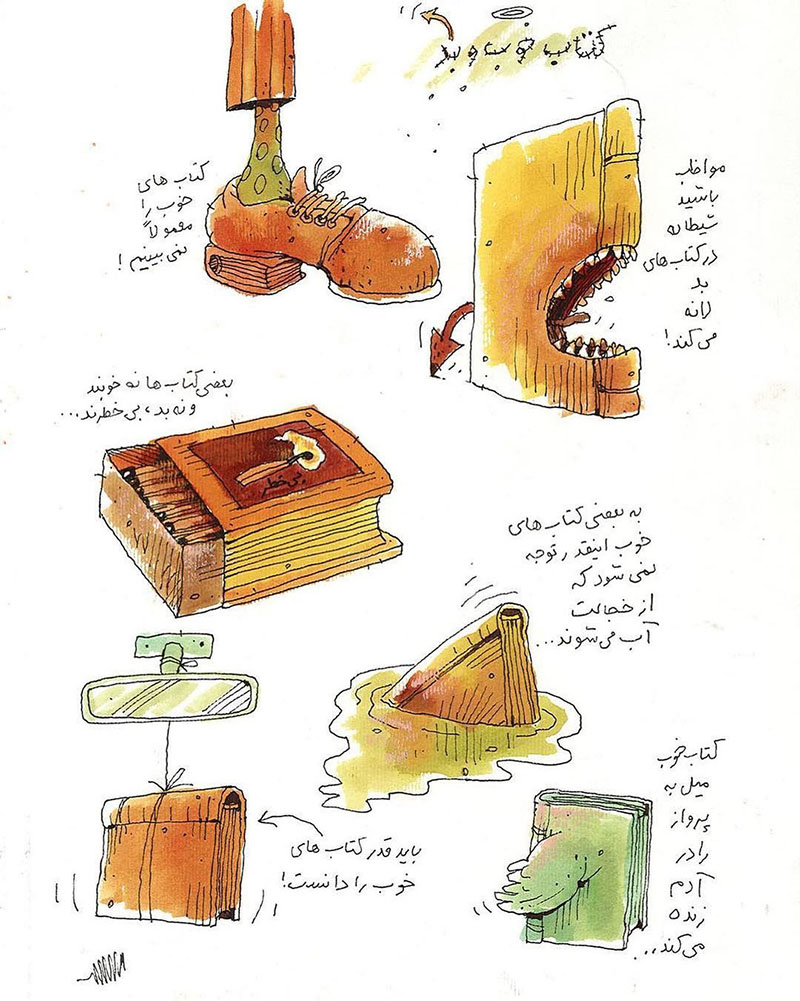 کتاب خوب و بد
کتاب های
خوب را
معمولاً
نمی بینیم!
مواظب
باشید
شیطان
در کتاب های
بد
لانه
می کند!
بعضی کتاب ها نه خوبند
و نه بد، بی خطرند...
بی خطر
به بعضی کتاب های
خوب اینقدر توجه
نمی شود که
از خجالت
آب می شوند...
باید قدر کتاب های
خوب را دانست!
کتاب خوب
میل به
پرواز
را در
آدم
زنده
می کند...